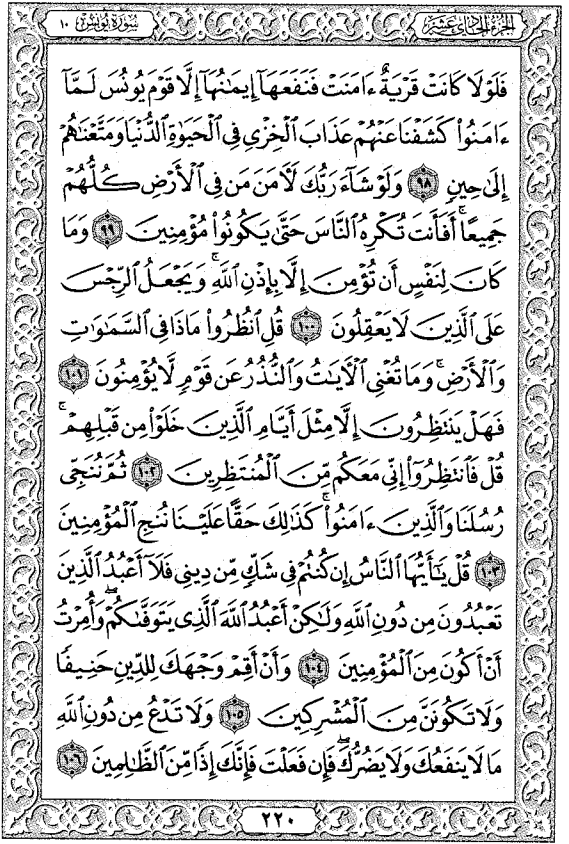 الجزء الحادي عشر
سورة يونس ١٠
فَلَوْلَا كَانَتْ قَرْيَةٌ ءَامَنَتْ فَنَفَعَهَآ إِيمَٰنُهَآ إِلَّا قَوْمَ يُونُسَ لَمَّآ
ءَامَنُوا۟ كَشَفْنَا عَنْهُمْ عَذَابَ ٱلْخِزْىِ فِى ٱلْحَيَوٰةِ ٱلدُّنْيَا وَمَتَّعْنَٰهُمْ
إِلَىٰ حِينٍ ٩٨ وَلَوْ شَآءَ رَبُّكَ لَـَٔامَنَ مَن فِى ٱلْأَرْضِ كُلُّهُمْ
جَمِيعًا ۚ أَفَأَنتَ تُكْرِهُ ٱلنَّاسَ حَتَّىٰ يَكُونُوا۟ مُؤْمِنِينَ ٩٩ وَمَا
كَانَ لِنَفْسٍ أَن تُؤْمِنَ إِلَّا بِإِذْنِ ٱللَّهِ ۚ وَيَجْعَلُ ٱلرِّجْسَ
عَلَى ٱلَّذِينَ لَا يَعْقِلُونَ ١٠٠ قُلِ ٱنظُرُوا۟ مَاذَا فِى ٱلسَّمَٰوَٰتِ
وَٱلْأَرْضِ ۚ وَمَا تُغْنِى ٱلْـَٔايَٰتُ وَٱلنُّذُرُ عَن قَوْمٍ لَّا يُؤْمِنُونَ ١٠١
فَهَلْ يَنتَظِرُونَ إِلَّا مِثْلَ أَيَّامِ ٱلَّذِينَ خَلَوْا۟ مِن قَبْلِهِمْ ۚ
قُلْ فَٱنتَظِرُوٓا۟ إِنِّى مَعَكُم مِّنَ ٱلْمُنتَظِرِينَ ١٠٢ ثُمَّ نُنَجِّى
رُسُلَنَا وَٱلَّذِينَ ءَامَنُوا۟ ۚ كَذَٰلِكَ حَقًّا عَلَيْنَا نُنجِ ٱلْمُؤْمِنِينَ
١٠٣ قُلْ يَٰٓأَيُّهَا ٱلنَّاسُ إِن كُنتُمْ فِى شَكٍّ مِّن دِينِى فَلَآ أَعْبُدُ ٱلَّذِينَ
تَعْبُدُونَ مِن دُونِ ٱللَّهِ وَلَٰكِنْ أَعْبُدُ ٱللَّهَ ٱلَّذِى يَتَوَفَّىٰكُمْ ۖ وَأُمِرْتُ
أَنْ أَكُونَ مِنَ ٱلْمُؤْمِنِينَ ١٠٤ وَأَنْ أَقِمْ وَجْهَكَ لِلدِّينِ حَنِيفًا
وَلَا تَكُونَنَّ مِنَ ٱلْمُشْرِكِينَ ١٠٥ وَلَا تَدْعُ مِن دُونِ ٱللَّهِ
مَا لَا يَنفَعُكَ وَلَا يَضُرُّكَ ۖ فَإِن فَعَلْتَ فَإِنَّكَ إِذًا مِّنَ ٱلظَّٰلِمِينَ ١٠٦
٢٢٠